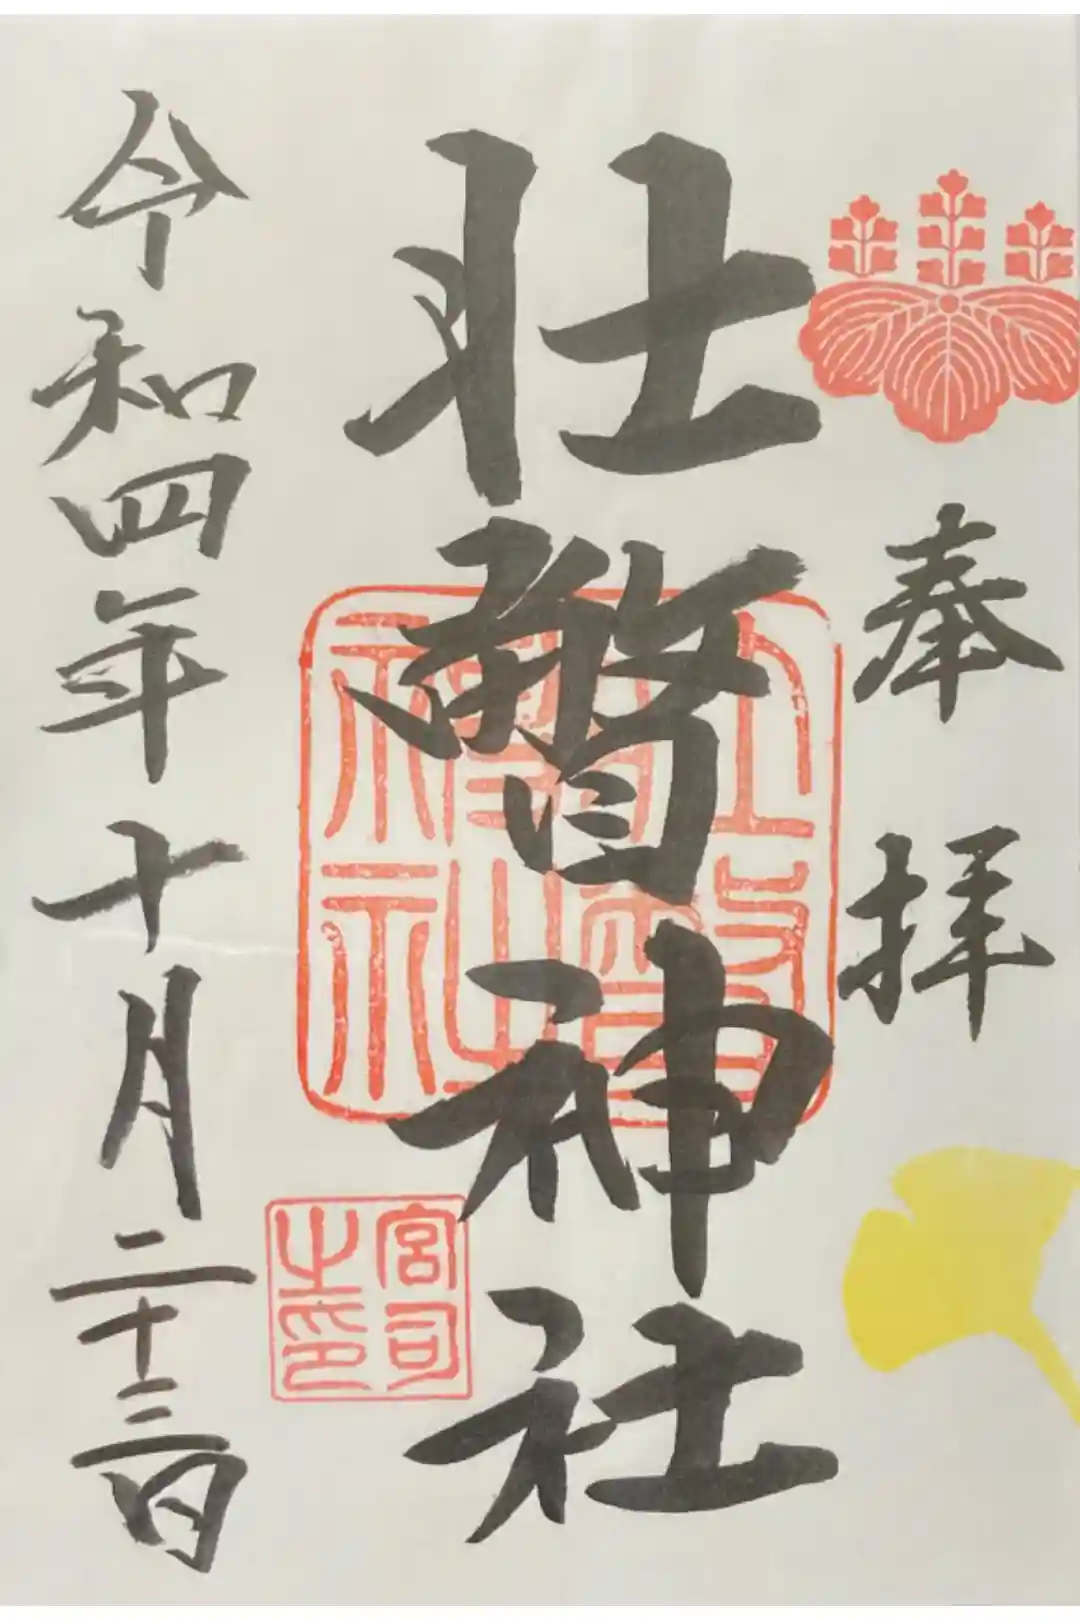 奉拝
壮瞥神社
令和四年十月二十三日
壮瞥神社
宮司之印